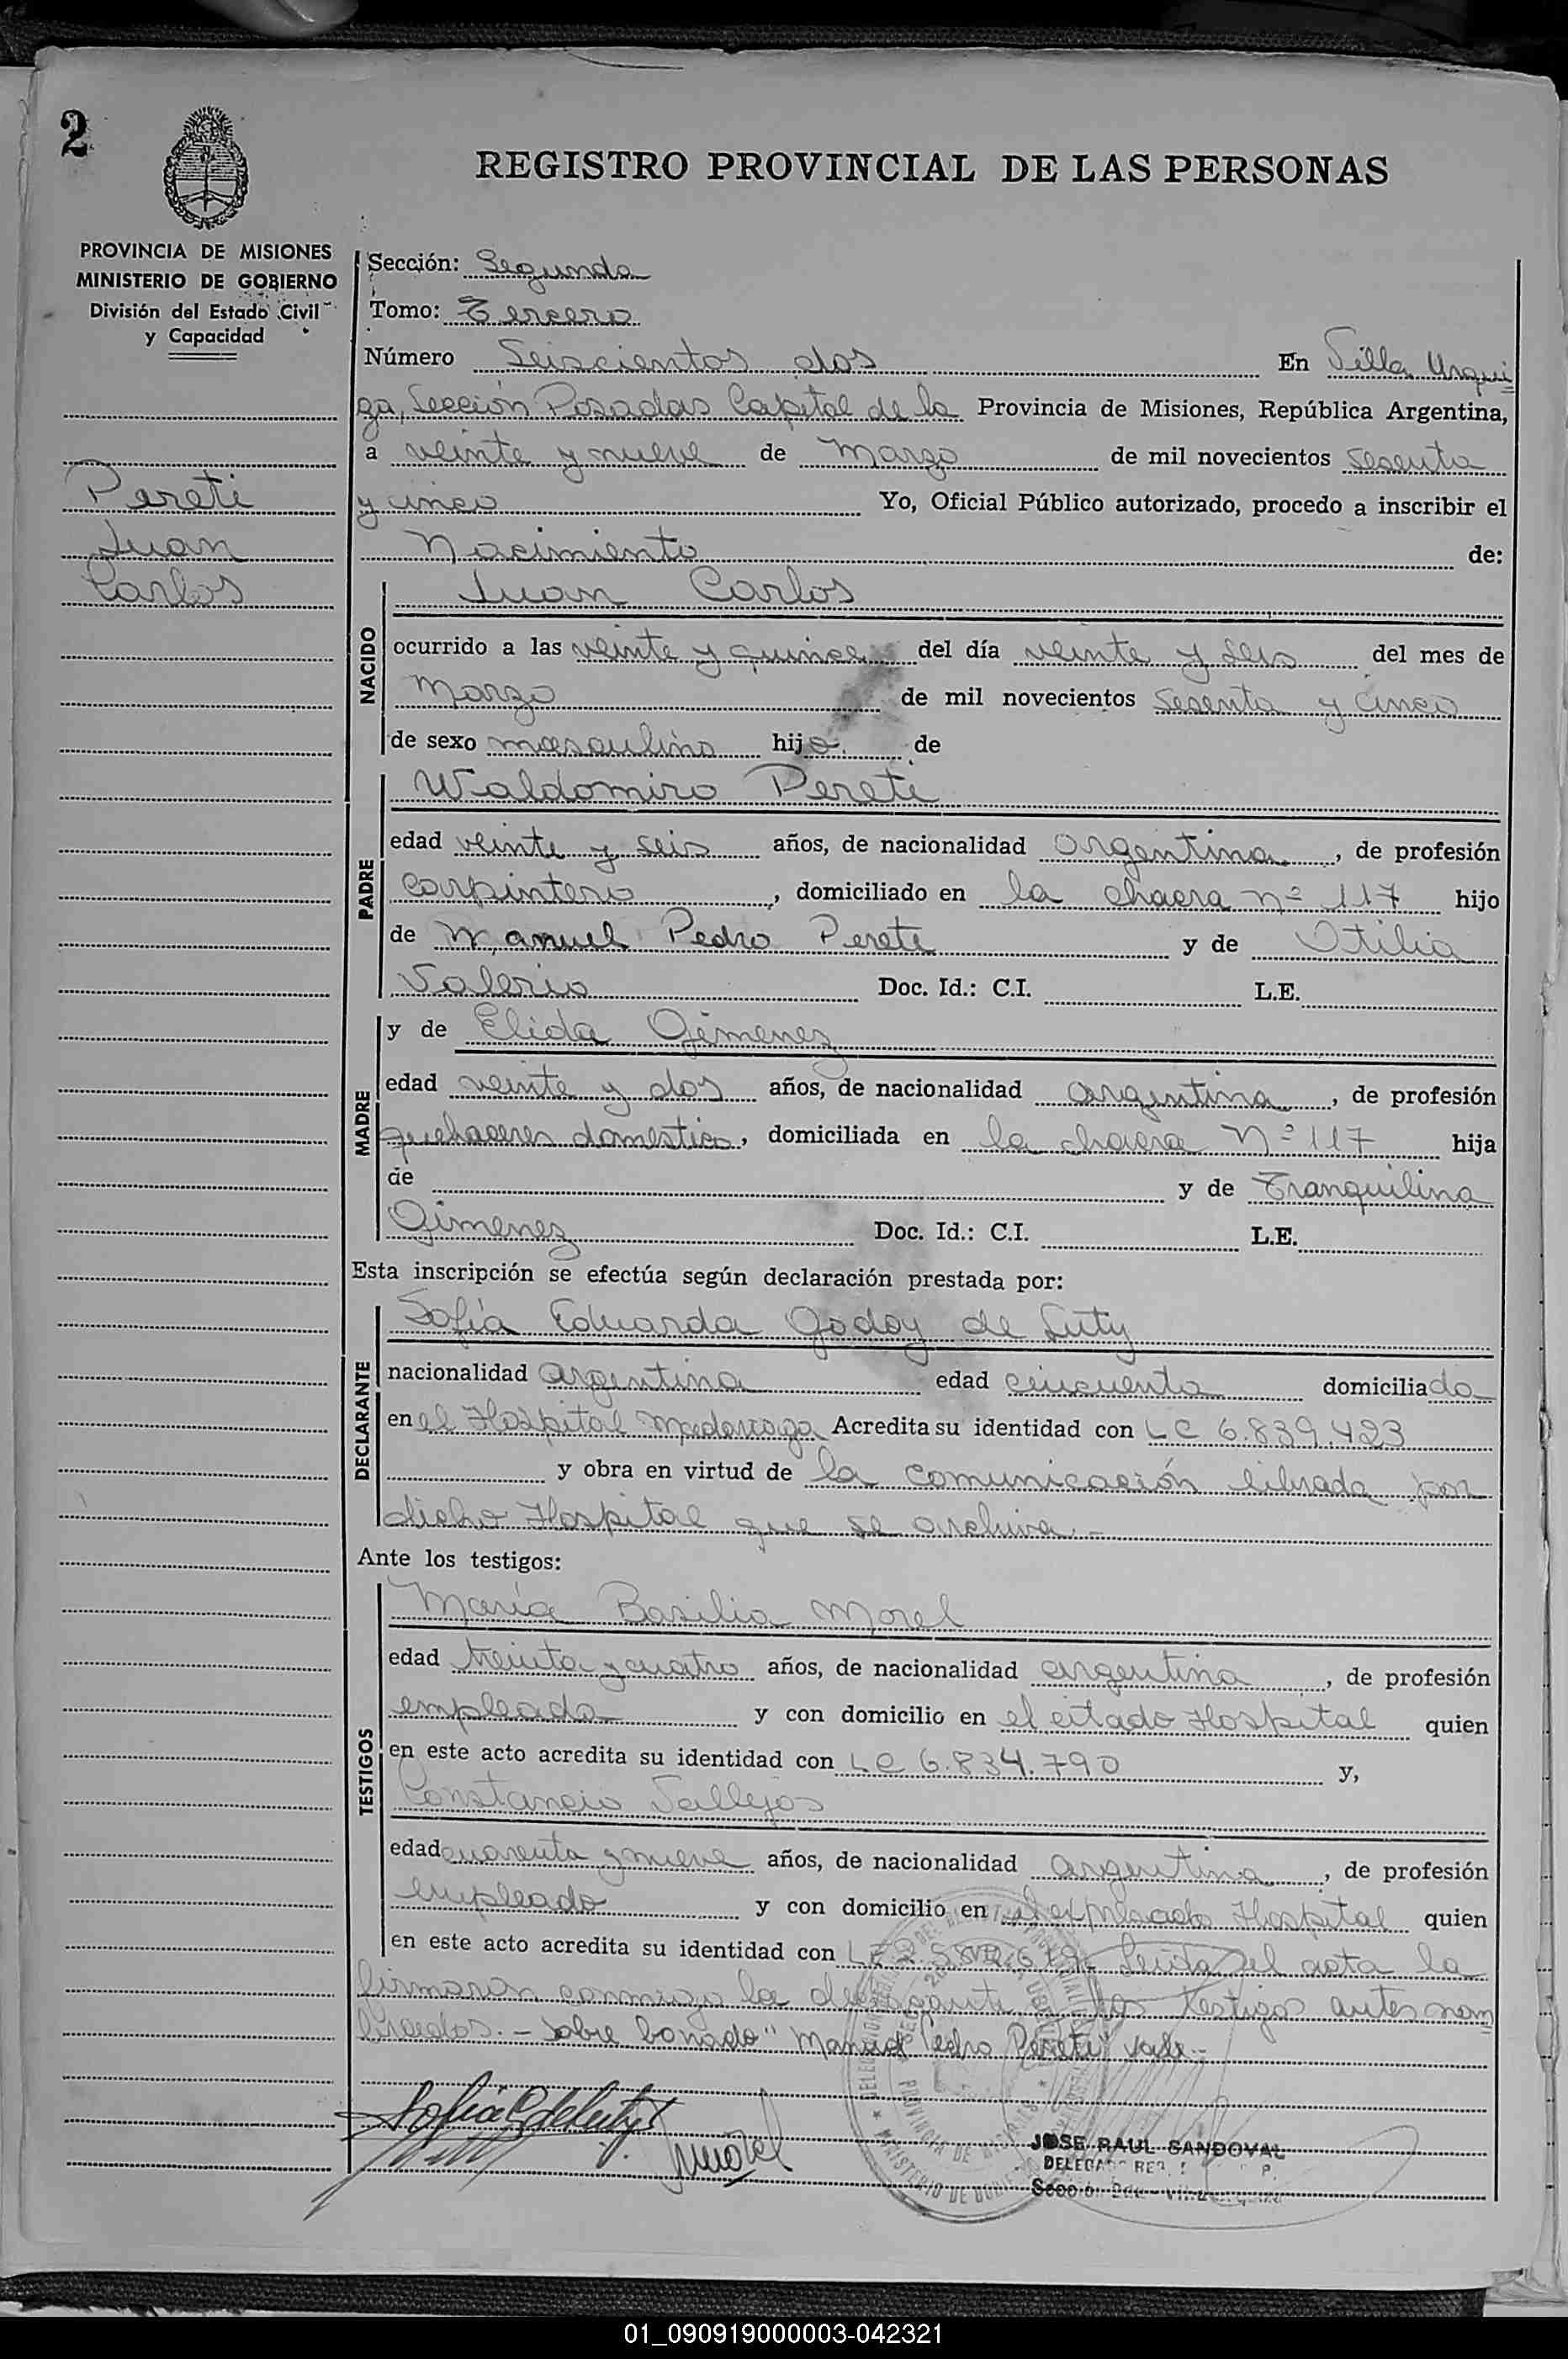 2
REGISTRO PROVINCIAL DE LAS PERSONAS
PROVINCIA DE MISIONES
MINISTERIO DE GOBIERNO
División del Estado Civil
y Capacidad
Pereti
Juan
Carlos
Sección: Segunda
Tomo: Tercero
Número Seiscientos dos En Villa Urqui
za, Sección Posadas Capital de la Provincia de Misiones, República Argentina,
a veinte y nueve de Marzo de mil novecientos sesenta
y cinco Yo, Oficial Público autorizado, procedo a inscribir el
Nacimiento de:
NACIDO
Juan Carlos
ocurrido a las veinte y quince del día veinte y seis del mes de
Marzo de mil novecientos sesenta y cinco
de sexo masculino hijo de
PADRE
Waldomiro Pereti
edad veinte y seis años, de nacionalidad argentina, de profesión
carpintero, domiciliado en la chacra nº 117 hijo
de Manuel Pedro Pereti y de Otilia
Valerio Doc. Id.: C.I. L.E.
MADRE
y de Elida Gimenez
edad veinte y dos años, de nacionalidad argentina, de profesión
quehaceres domestico, domiciliada en la chacra Nº 117 hija
de y de Tranquilina
Gimenez Doc. Id.: C.I. L.E.
Esta inscripción se efectúa según declaración prestada por:
DECLARANTE
Sofía Eduarda Godoy de Luty
nacionalidad argentina edad cincuenta domiciliada
en el Hospital Madariaga Acredita su identidad con LC 6.839.423
y obra en virtud de la comunicación librada por
dicho Hospital que se archiva.-
Ante los testigos:
TESTIGOS
María Basilia Morel
edad treinta y cuatro años, de nacionalidad argentina, de profesión
empleada y con domicilio en el citado Hospital quien
en este acto acredita su identidad con LC 6.834.790 y,
Constancio Vallejos
edad cuarenta y nueve años, de nacionalidad argentina, de profesión
empleado y con domicilio en el expresado Hospital quien
en este acto acredita su identidad con L Leída el acta la
firmaron conmigo la los testigos antes nom
brados.- Sobre borrado "Manuel Pedro Pereti" vale.-
Sofía G de Luty
Morel
JOSE RAUL SANDOVAL
01_090919000003-042321